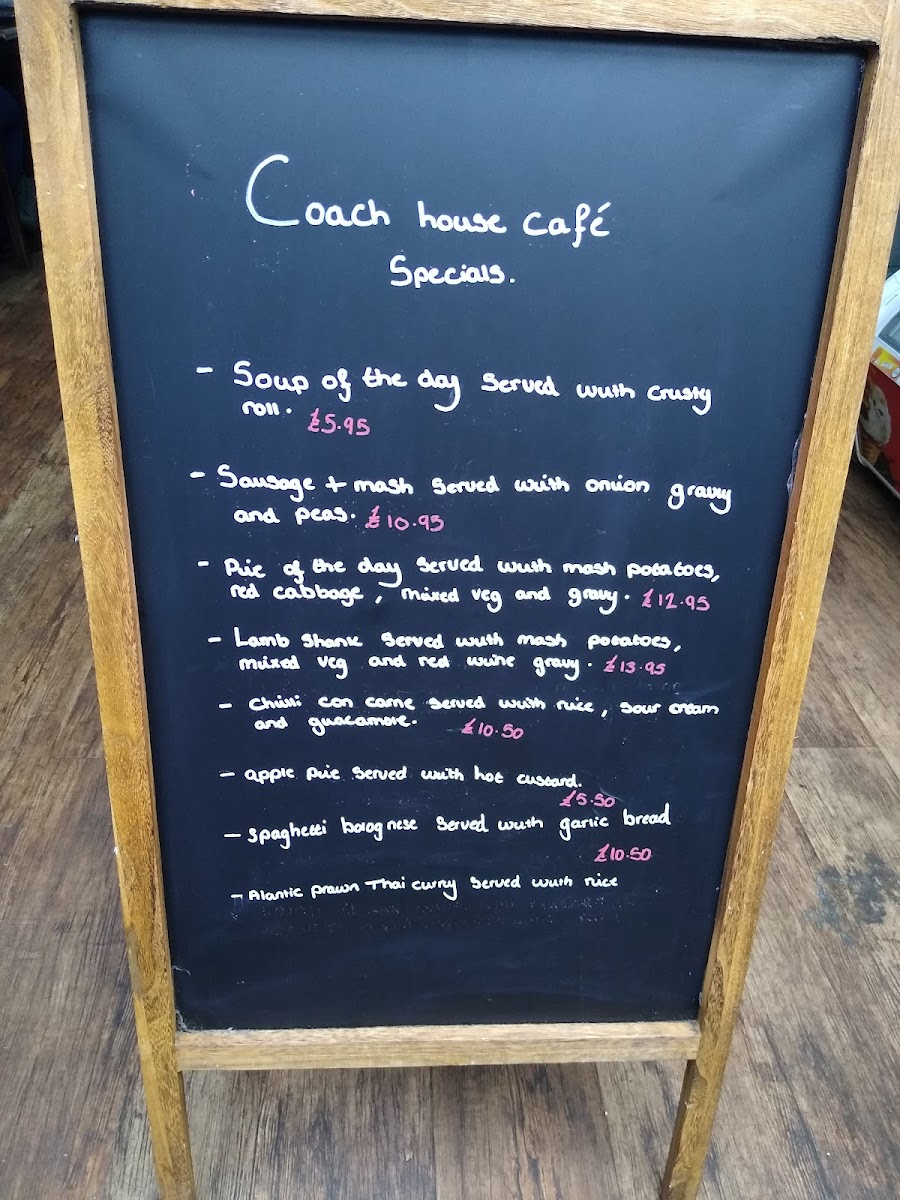 Coach house café
Specials.
- Soup of the day served with crusty
roll. £5.95
- Sausage + mash served with onion gravy
and peas. £10.95
- Pie of the day served with mash potatoes,
red cabbage, mixed veg and gravy. £12.95
- Lamb shank served with mash potatoes,
mixed veg and red wine gravy. £13.95
- Chilli con carne served with rice, sour cream
and guacamore. £10.50
- apple pie served with hot custard.
£5.50
- spaghetti bolognese served with garlic bread
£10.50
- Alantic prawn Thai curry served with rice